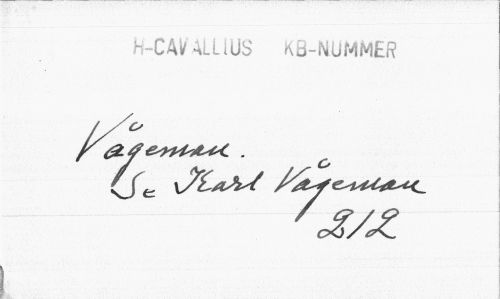 H-CAVALLIUS KB-NUMMER
Vågeman.
Se Karl Vågeman
212